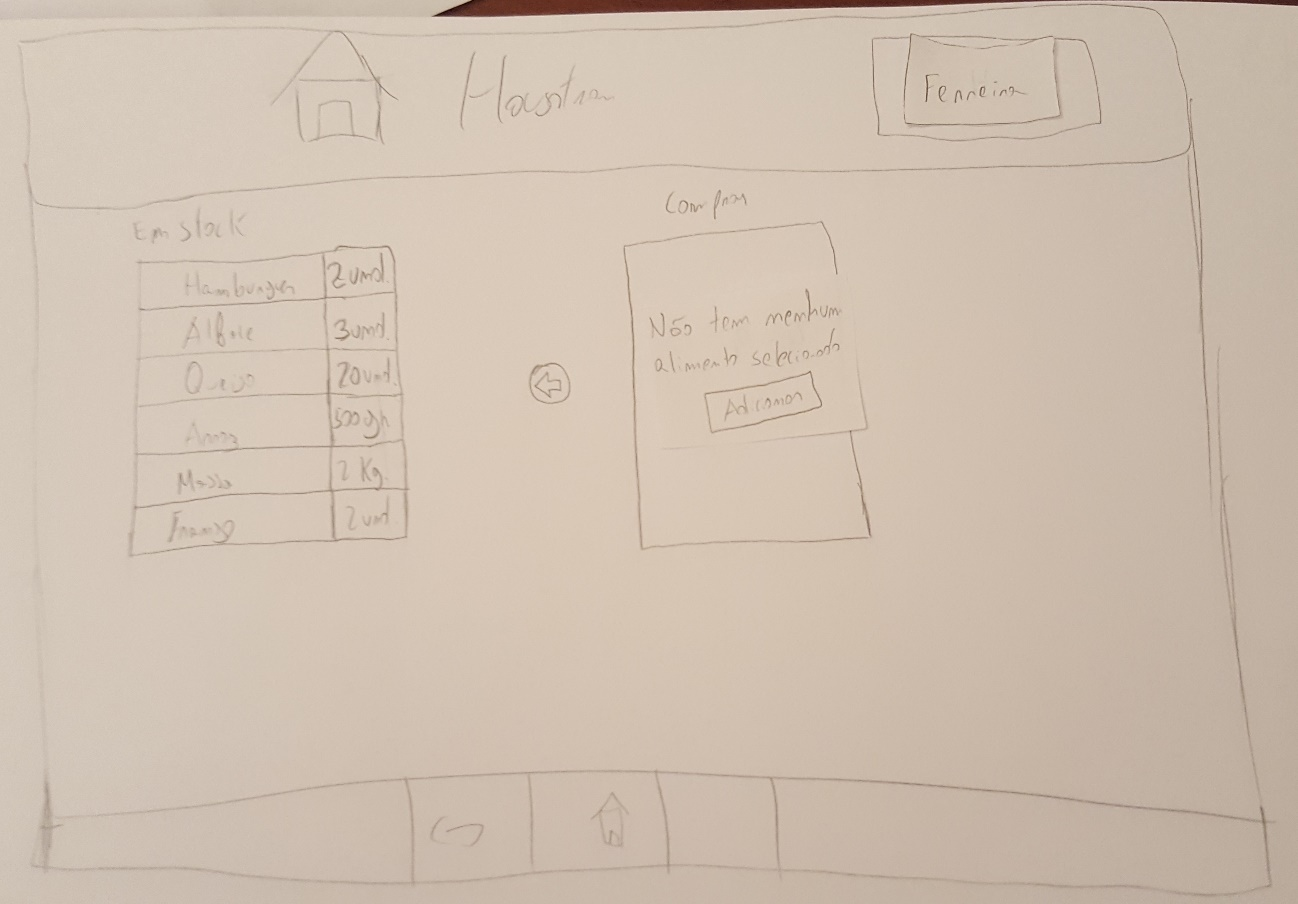 Ferreira
Em stock
Compras
Hamburguer 2 und.
Alface 3 und.
Queijo 20 und.
Arroz 500 gr
Massa 2 Kg.
Frango 2 und.
Não tem nenhum
alimento selecionado
Adicionar